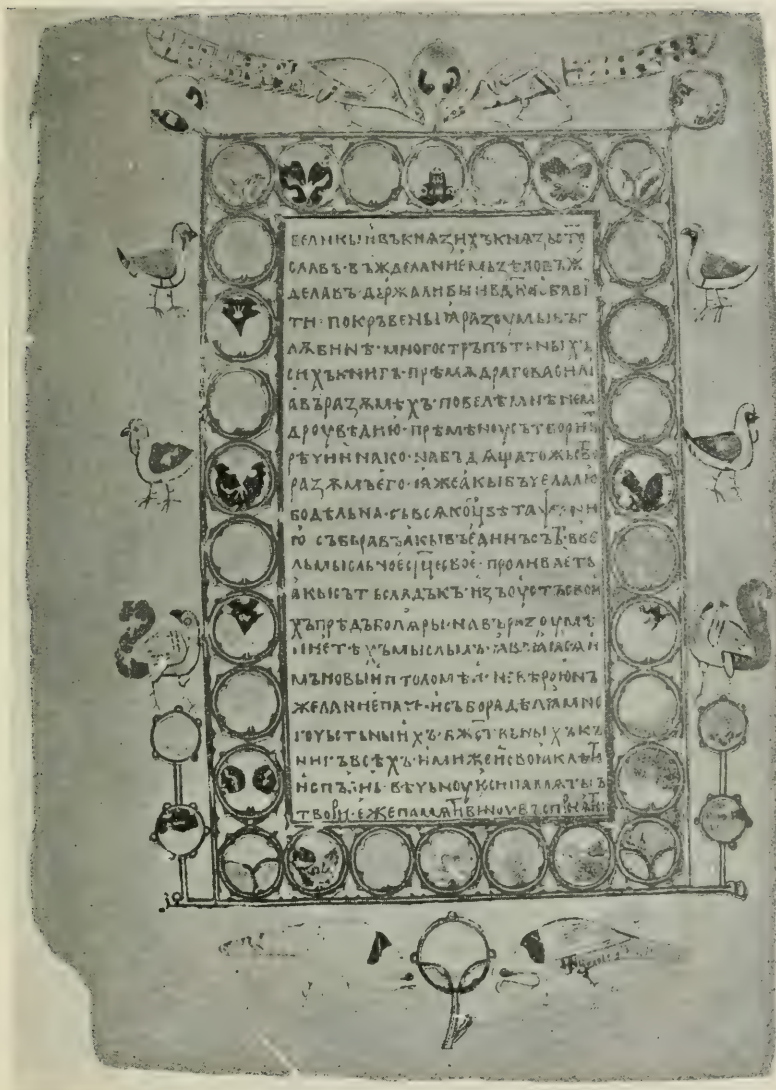 ВЕЛИКЫИ ВЪ КНѦЗИХЪ КНѦЗЬ СТО
СЛАВЪ · ВЪЖДЕЛАНИЕМЬ ЗѢЛО ВЪЖ
ДЕЛАВЪ · ДЬРЖАЛИВЫИ ВЛДКА ОБАВИ
ТИ · ПОКРЪВЕНЫѦ РАЗОУМЫ ВЪ Г
ЛѪБИНѢ · МНОГОСТРЪПЪТЬНЫХЪ
СИХЪ КНИГ · ПРѢМѪДРАГО ВАСИЛА
А ВЪ РАЗѪМѢХЪ · ПОВЕЛѢ МЬНѢ НЕМ
ДРОУВѢДИЮ · ПРѢМѢНОУ СЪТВОРИТИ
РѢЧИ ИНАКО · НАБЪДѦЩА ТОЖЬСТВО
РАЗѪМЪ ЕГО · ѨЖЕ АКЫ БЪЧЕЛА ЛЮ
БОДѢЛЬНА · СЪ ВСѦКОГО ЦВѢТА ПСАНИ
Ю СЪБЬРАВЪ АКЫ ВЪ ЕДИНЪ СЪТЪ · ВЪ ВЕ
ЛЬМЫСЛЬНОЕ СРДЦЕ СВОЕ · ПРОЛИВАЕТЬ
АКЫ СЪТЪ СЛАДЪКЪ · ИЗ ОУСТЪ СВОИ
ХЪ ПРѢДЪ БОЛѦРЫ · НА ВЪРАЗОУМѢ
НИЕ ТѢХЪ МЫСЛЬМЪ ·
МЪ НОВЫИ ПТОЛОМѢИ · НЕ ВѢРОЮ НЪ
ЖЕЛАНИЕ ПАЧЕ · И СЪБОРА ДѢЛѦ МНО
ГОЧЬСТЬНЫИХЪ · БЖСТВЬНЫХЪ КЪ
НИГЪ ВСѢХЪ · ИМИ ЖЕ И СВОѨ КЛѢТИ
ИСПЪЛНЬ · ВѢЧЬНОУЮ СИ ПАМѦТЬ СЪ
ТВОРИ · ЕЖЕ ПАМѦТИ ВИНОУ ВЪСПРИѦТИ